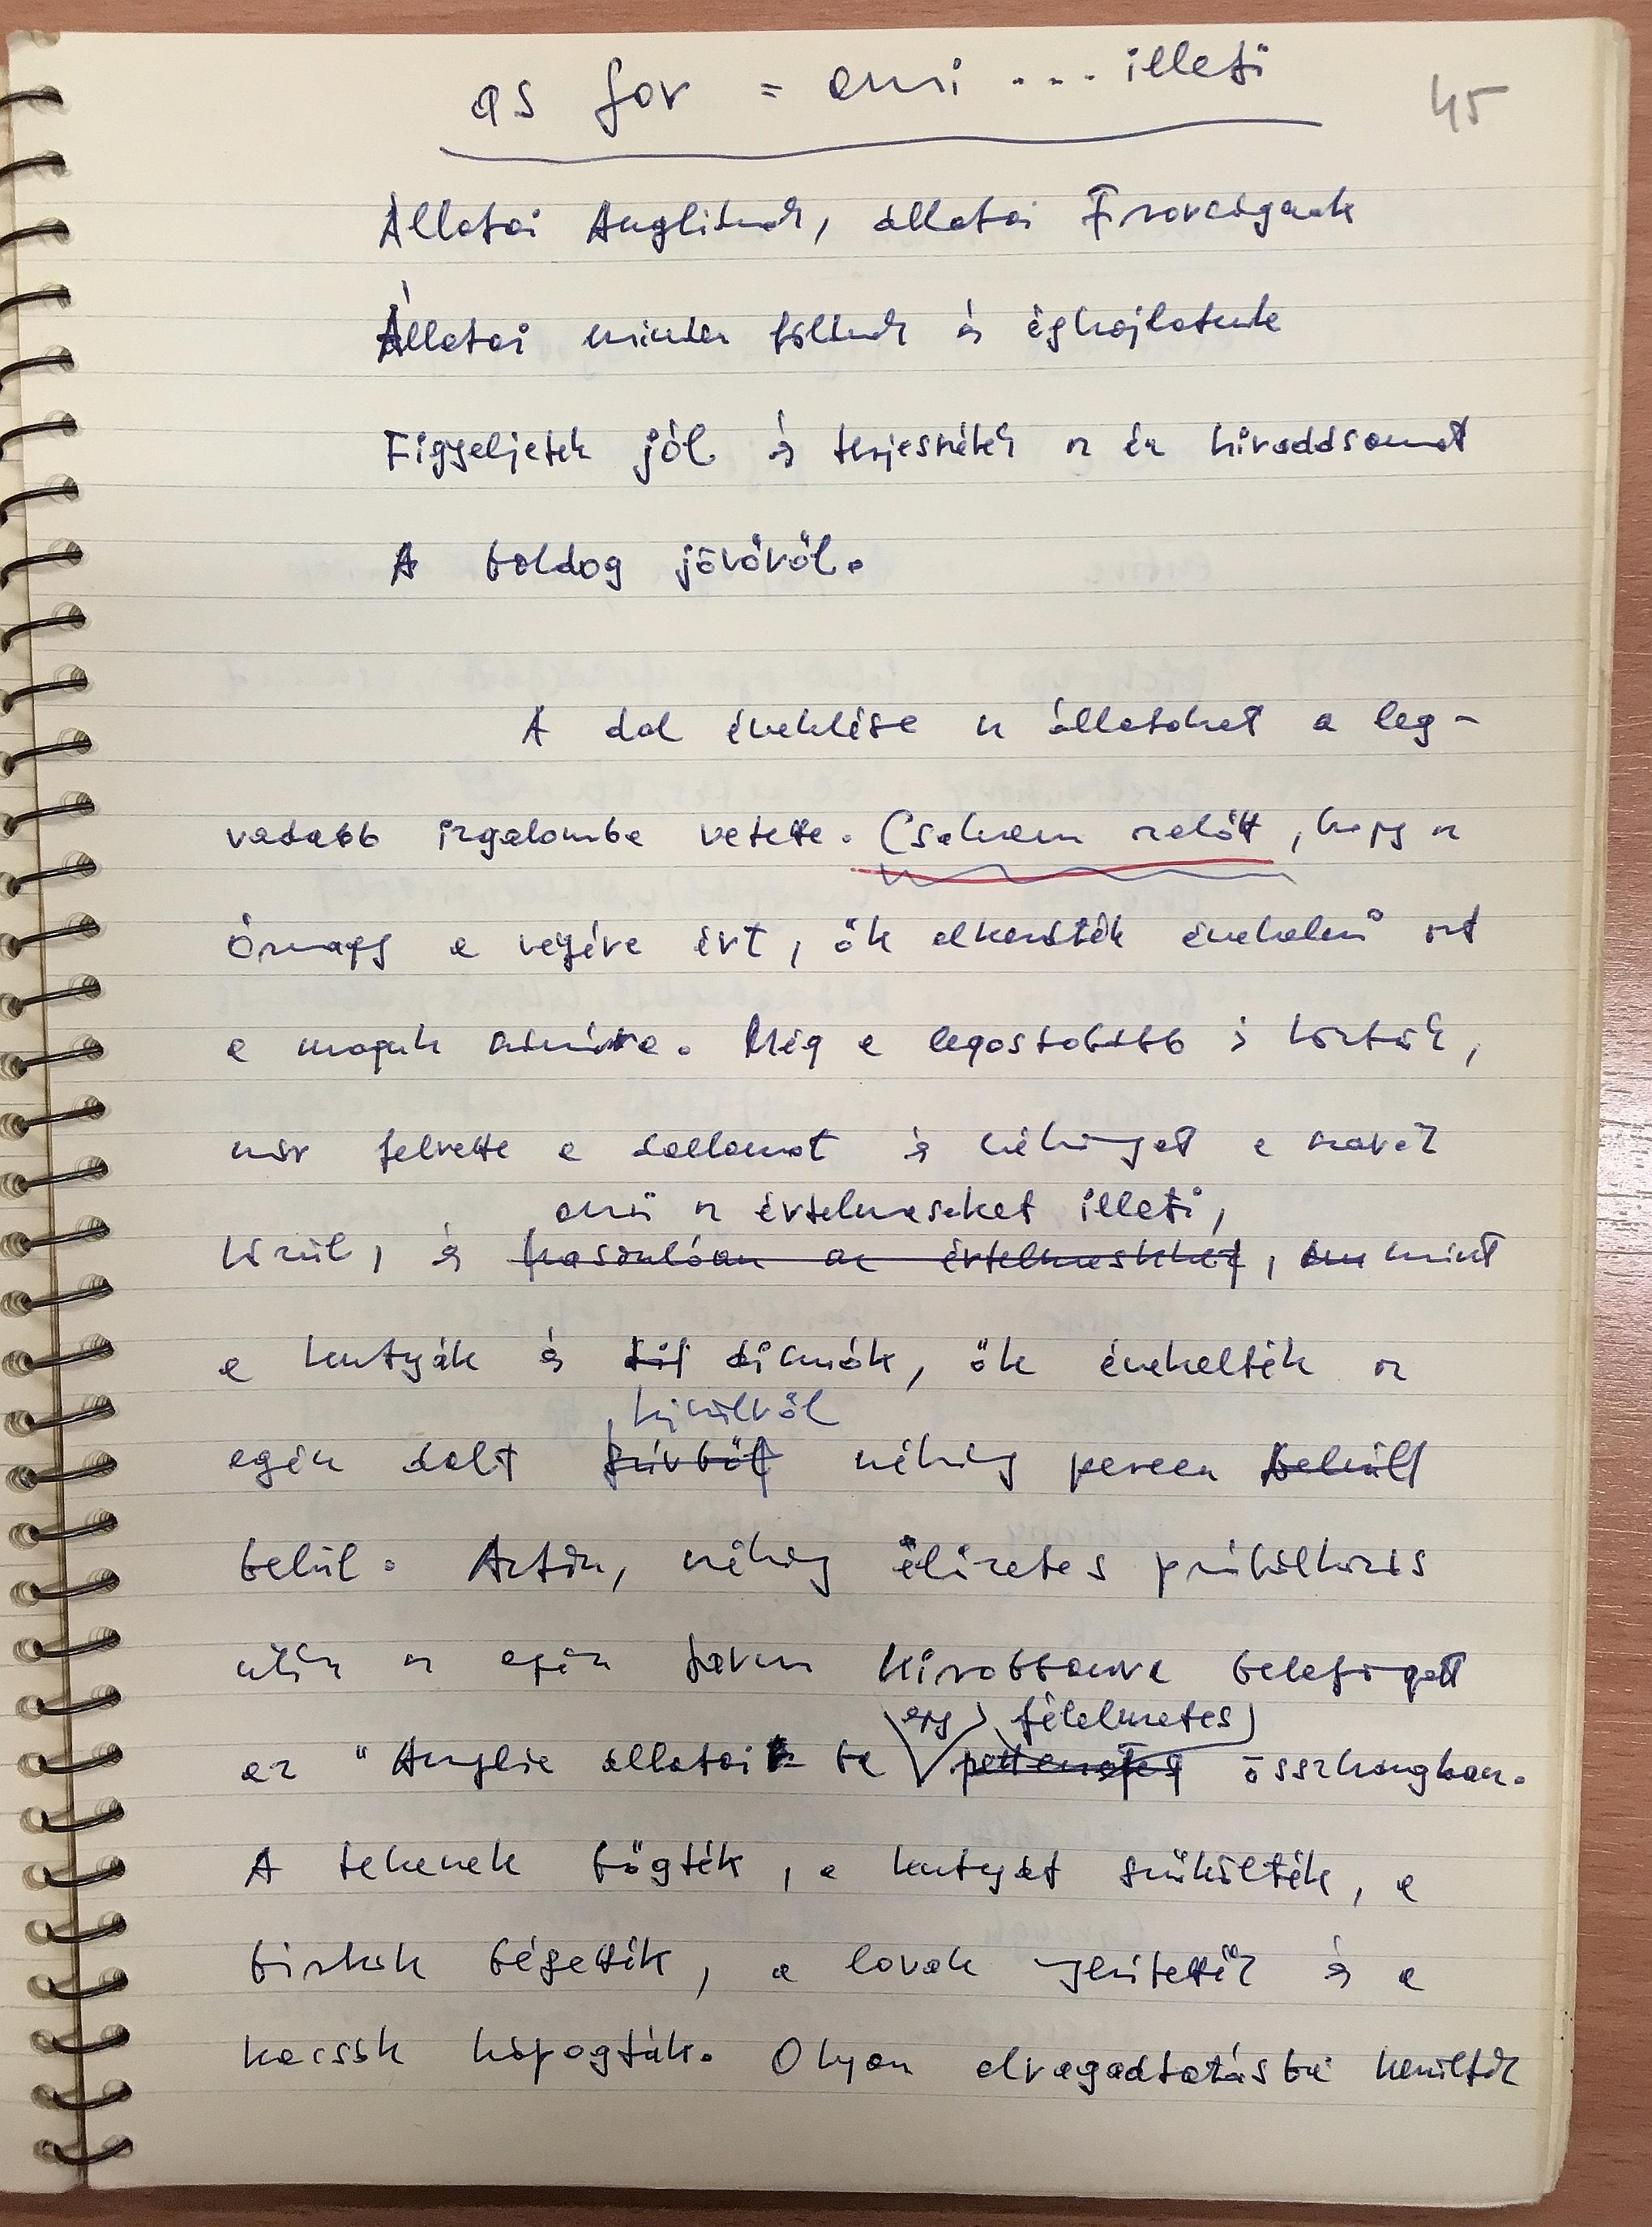 as for = ami ... illeti
45
Állatai Angliának, állatai Írországnak
Állatai minden földnek és éghajlatnak
Figyeljetek jól és terjesszétek az én híradásomat
A boldog jövőről.
A dal éneklése az állatokat a leg-
vadabb izgalomba vetette. Csaknem azelőtt, hogy az
Őrnagy a végére ért, ők elkezdték énekelni azt
a maguk számára. Még a legostobább is köztük,
már felvette a dallamot és néhányat a szavak
ami az értelmeseket illeti,
közül, és hasonlóan az értelmesekhez, mint
a kutyák és disznók, ők énekelték az
kívülről
egész dalt szívből néhány percen belül
belül. Aztán, néhány előzetes próbálkozás
után az egész farm kirobbanva belefogott
egy félelmetes
az "Anglia állatai" ba összhangban.
A tehenek bőgték, a kutyák szűkölték, a
birkák bégették, a lovak nyerítették és a
kacsák hápogták. Olyan elragadtatásba kerültek